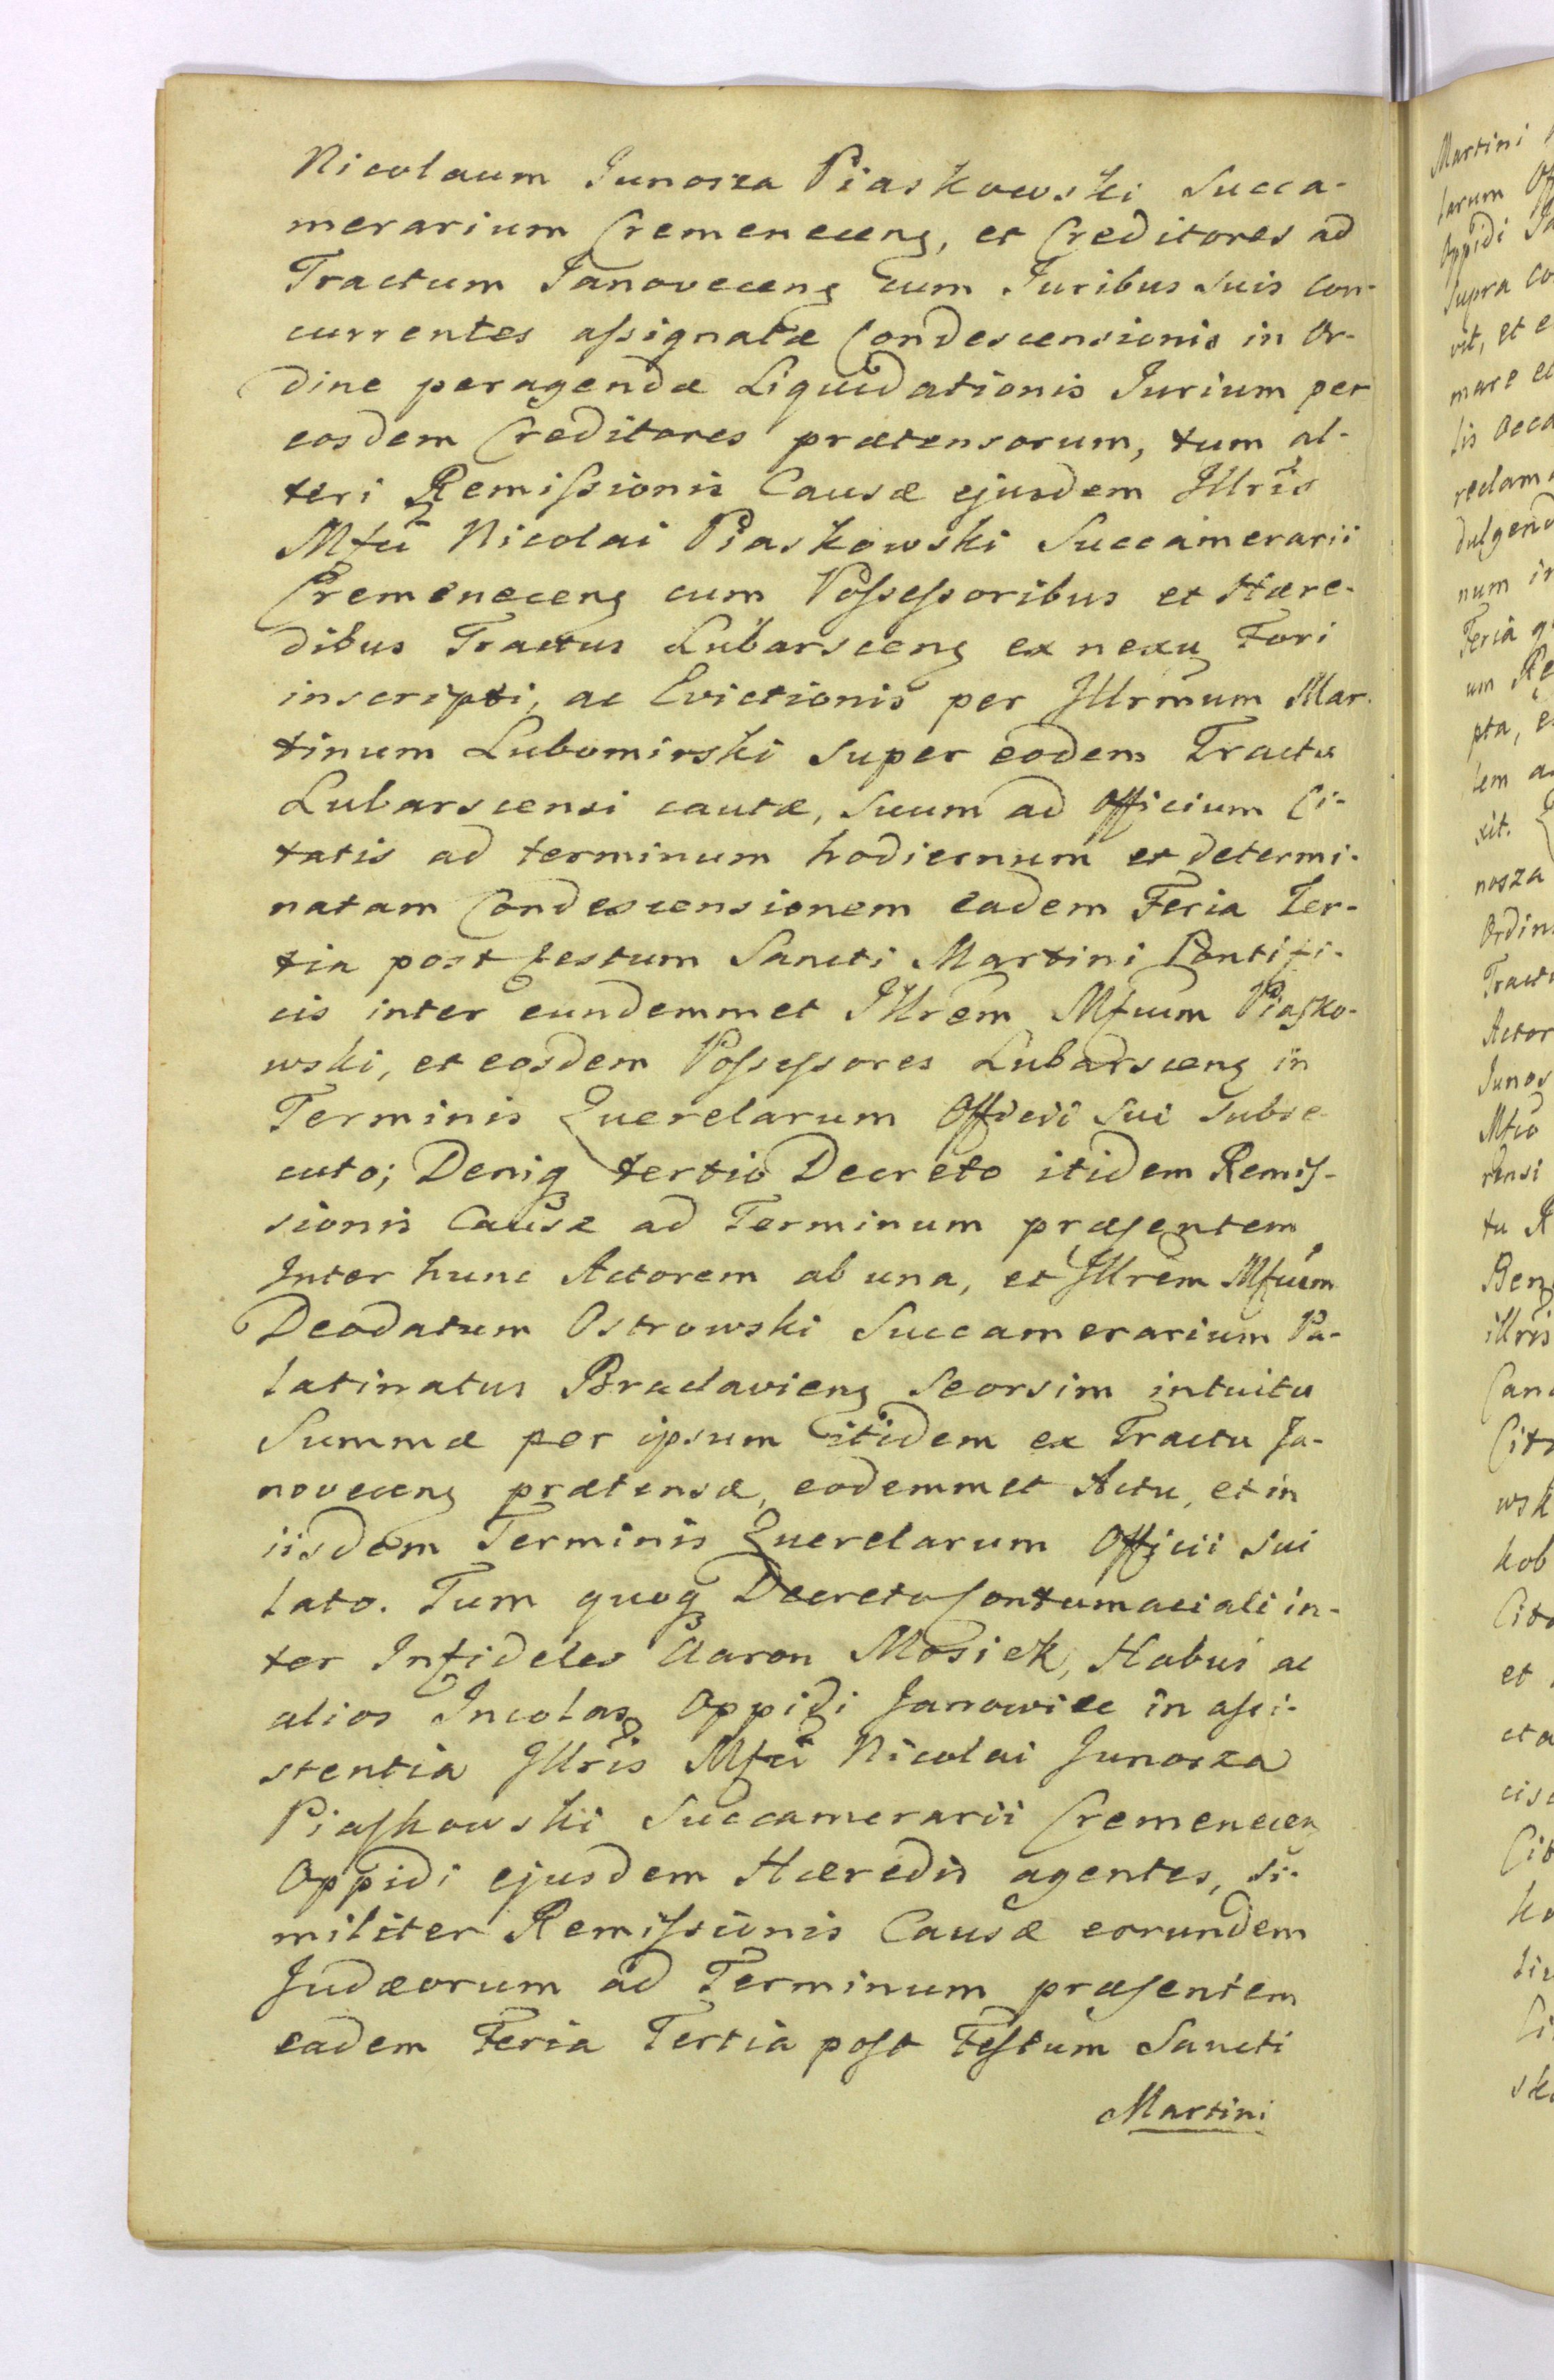 Nicolaum Junosza Piaskowski Succa-
merarium Cremeneceng, et Creditores ad
Tractum Janoveceng cum Juribus suis con-
currentes aſsignatæ Condescensionis in Or-
dine peragendæ Liquidationis Jurium per
eosdem Creditores prætensorum, tum al-
teri Remiſsionis Causæ ejusdem Illris
Mfci Nicolai Piaskowski Succamerarii
Cremeneceng cum Poſseſsoribus et Hære-
dibus Tractus Lubarsceng ex nexu Fori
inscripti, ac Evictionis per Illrmum Mar-
tinum Lubomirski super eodem Tractu
Lubarscensi cautæ, suum ad Officium Ci-
tatis ad terminum hodiernum et determi-
natam Condescensionem eadem Feria Ter-
tia post festum Sancti Martini Pontifi-
cis inter eundemmet Illrem Mfcum Piaſko-
wski, et eosdem Poſseſsores Lubarsceng in
Terminis Querelarum Officii sui subse-
cuto; Deniq tertio Decreto itidem Remiſ-
sionis Causæ ad Terminum præſentem
Inter hunc Actorem ab una, et Illrem Mfcum
Deodatum Ostrowski Succamerarium Pa-
latinatus Braclavieng seorsim intuitu
Summæ per ipsum itidem ex Tractu Ja-
noveceng prætensæ, eodemmet Actu, et in
iisdem Terminis Querelarum Officii sui
lato. Tum quoq Decreto Contumaciali in-
ter Infideles Aaron Mosiek, Habus ac
alios Incolas Oppidi Janowiec in aſsi-
stentia Illris Mfci Nicolai Junosza
Piaſkowski Succamerarii Cremenecen
Oppidi ejusdem Hæredis agentes, si-
militer Remiſsionis Causæ eorundem
Judæorum ad Terminum præſentem
eadem Feria Tertia poſt Feſtum Sancti
Martini